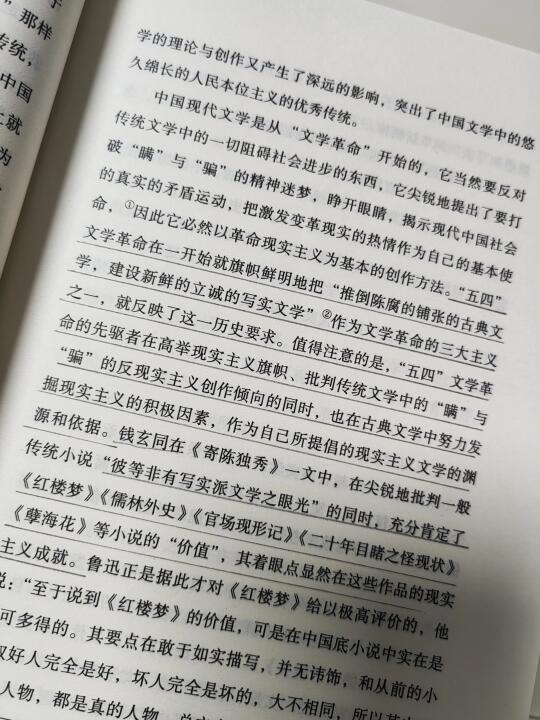 于
”那样
传统，
中国
就
为
学的理论与创作又产生了深远的影响，突出了中国文学中的悠
久绵长的人民本位主义的优秀传统。
中国现代文学是从“文学革命”开始的，它当然要反对
传统文学中的一切阻碍社会进步的东西，它尖锐地提出了要打
破“瞒”与“骗”的精神迷梦，睁开眼睛，揭示现代中国社会
的真实的矛盾运动，把激发变革现实的热情作为自己的基本使
命，①因此它必然以革命现实主义为基本的创作方法。“五四”
文学革命在一开始就旗帜鲜明地把“推倒陈腐的铺张的古典文
学，建设新鲜的立诚的写实文学”②作为文学革命的三大主义
之一，就反映了这一历史要求。值得注意的是，“五四”文学革
命的先驱者在高举现实主义旗帜、批判传统文学中的“瞒”与
“骗”的反现实主义创作倾向的同时，也在古典文学中努力发
掘现实主义的积极因素，作为自己所提倡的现实主义文学的渊
源和依据。钱玄同在《寄陈独秀》一文中，在尖锐地批判一般
传统小说“彼等非有写实派文学之眼光”的同时，充分肯定了
《红楼梦》《儒林外史》《官场现形记》《二十年目睹之怪现状》
《孽海花》等小说的“价值”，其着眼点显然在这些作品的现实
主义成就。鲁迅正是据此才对《红楼梦》给以极高评价的，他
说：“至于说到《红楼梦》的价值，可是在中国底小说中实在是
可多得的。其要点在敢于如实描写，并无讳饰，和从前的小
好人完全是好，坏人完全是坏的，大不相同，所以其
人物，都是真的人物。